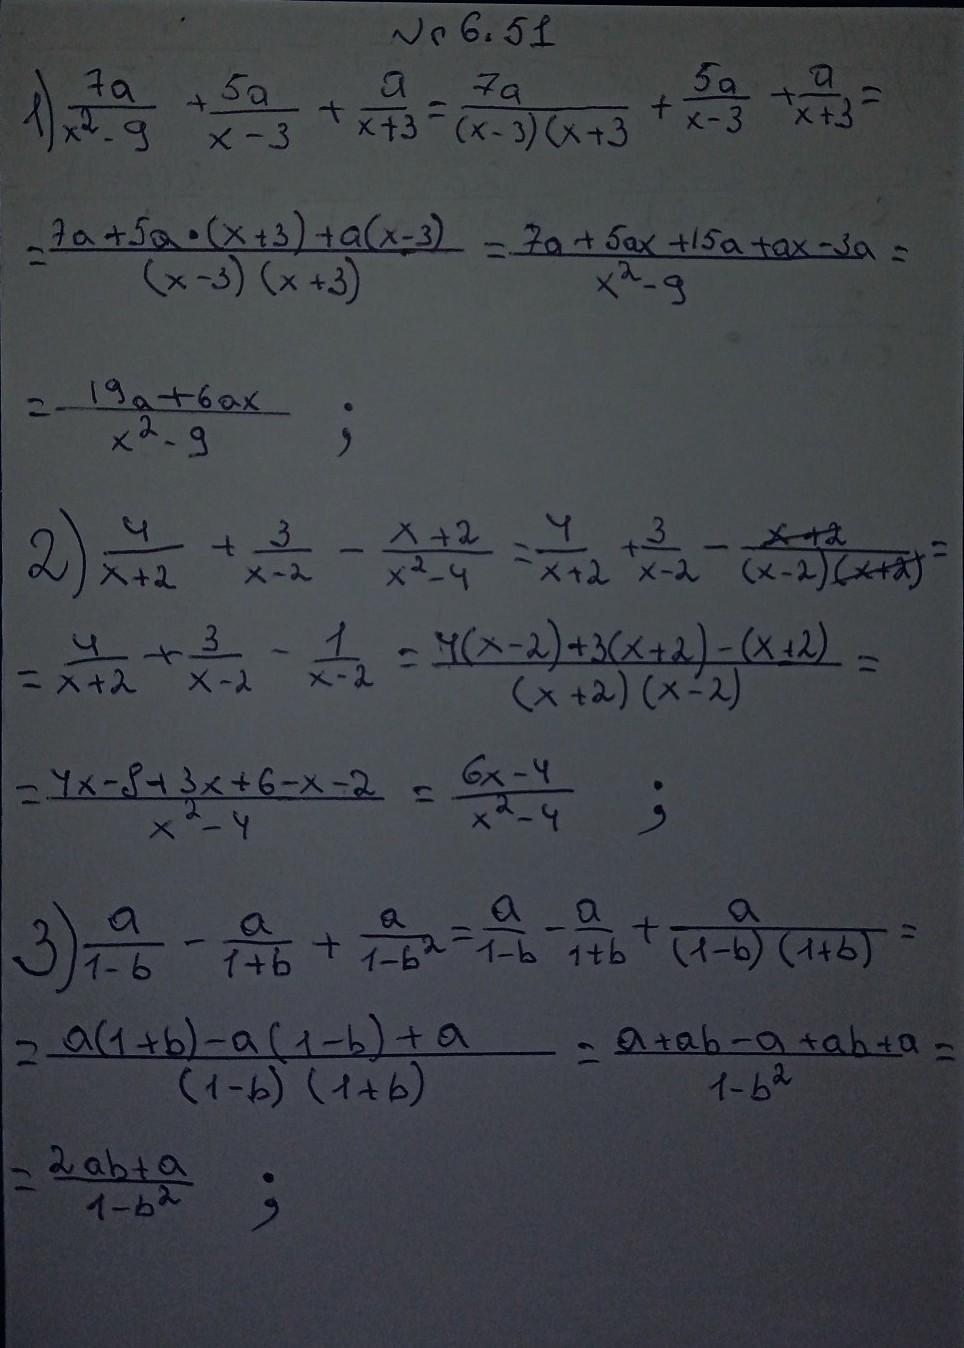 № 6.51
1) 7a/(x²-9) + 5a/(x-3) + a/(x+3) = 7a/((x-3)(x+3) + 5a/(x-3) + a/(x+3) =
= (7a+5a·(x+3)+a(x-3))/((x-3)(x+3)) = (7a+5ax+15a+ax-3a)/(x²-9) =
= (19a+6ax)/(x²-9) ;
2) 4/(x+2) + 3/(x-2) - (x+2)/(x²-4) = 4/(x+2) + 3/(x-2) - (x+2)/((x-2)(x+2)) =
= 4/(x+2) + 3/(x-2) - 1/(x-2) = (4(x-2)+3(x+2)-(x+2))/((x+2)(x-2)) =
= (4x-8+3x+6-x-2)/(x²-4) = (6x-4)/(x²-4) ;
3) a/(1-b) - a/(1+b) + a/(1-b²) = a/(1-b) - a/(1+b) + a/((1-b)(1+b)) =
= (a(1+b)-a(1-b)+a)/((1-b)(1+b)) = (a+ab-a+ab+a)/(1-b²) =
= (2ab+a)/(1-b²) ;